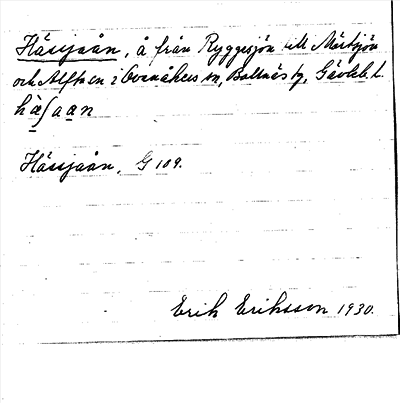 Hässjaån, å från Ryggesjön till Mörtsjön
och Alften i Ovanåkers sn, Bollnäs tg, Gävleb. l.
hä̱ʃa̱an
Hässjaån, G 109.
Erik Eriksson 1930.